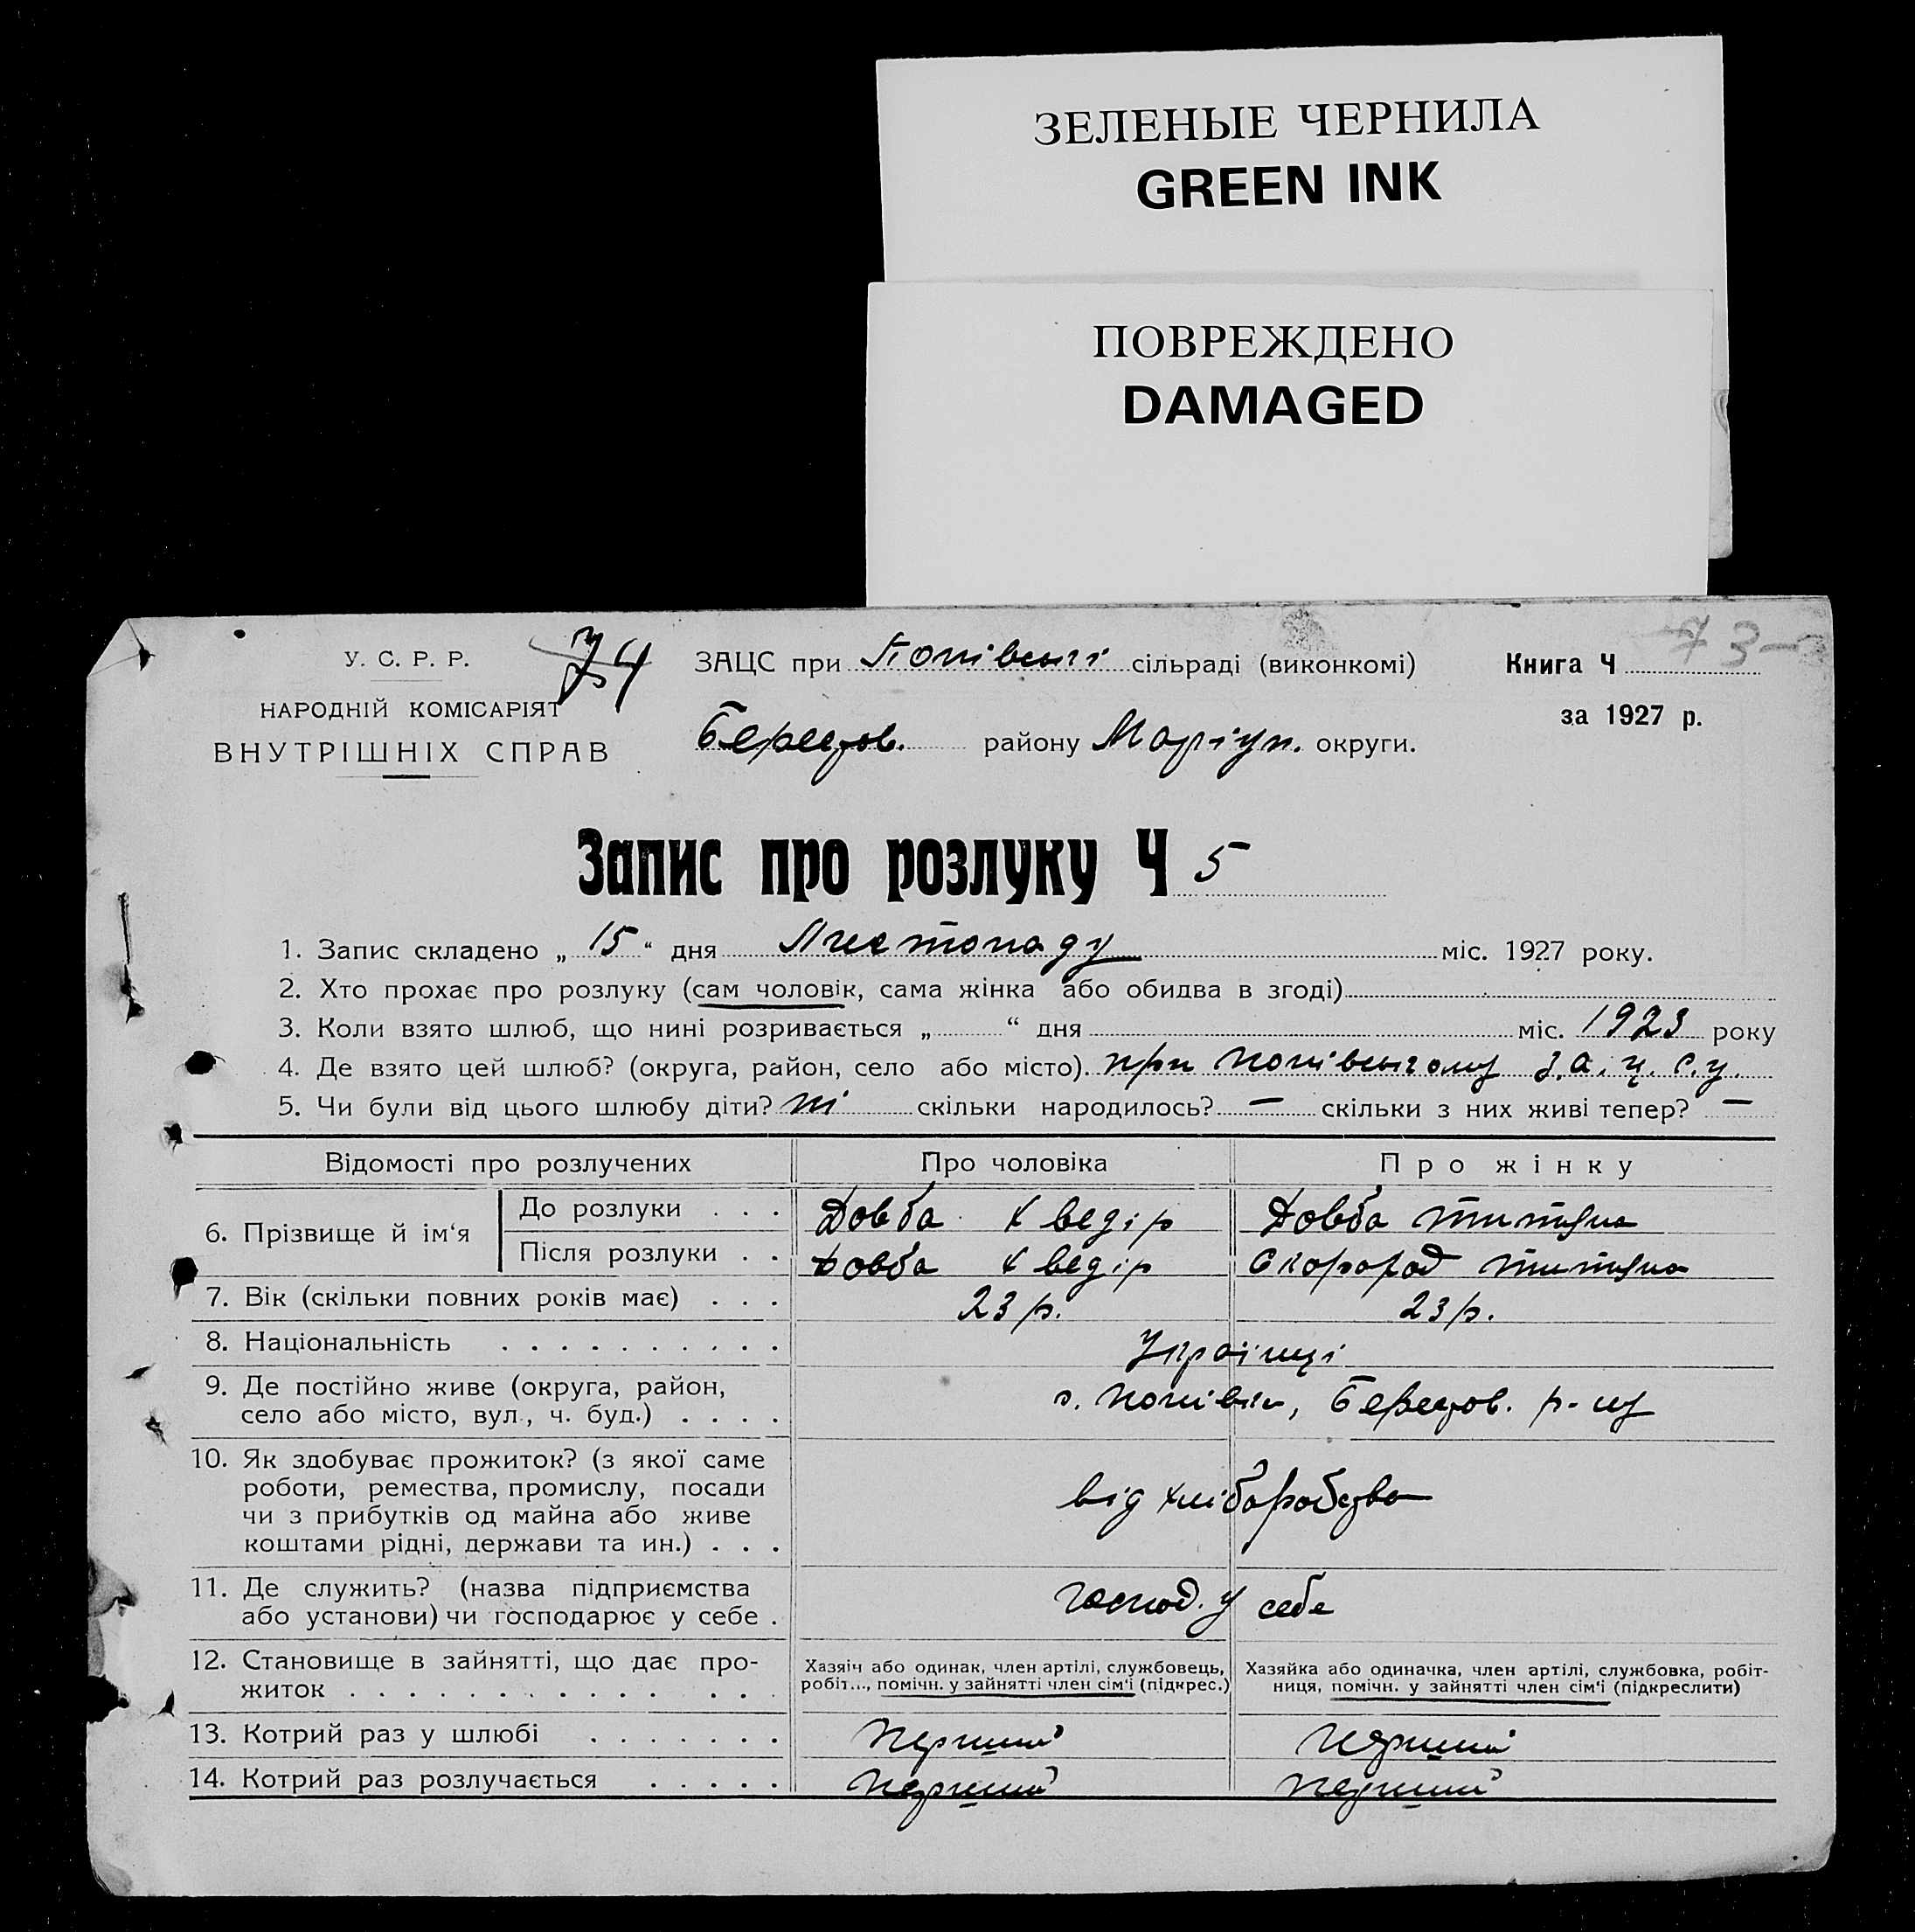 ЗЕЛЕНЫЕ ЧЕРНИЛА
GREEN INK
ПОВРЕЖДЕНО
DAMAGED
73
У. С. Р. Р.
74
ЗАЦС при Попівські сільраді (виконкомі)
Книга Ч
НАРОДНІЙ КОМІСАРІЯТ
за 1927 р.
ВНУТРІШНІХ СПРАВ
Берестов. району Маріуп. округи.
Запис про розлуку Ч 5
1. Запис складено „ 15 “ дня Листопаду міс. 1927 року.
2. Хто прохає про розлуку (сам чоловік, сама жінка або обидва в згоді)
3. Коли взято шлюб, що нині розривається „ “ дня міс. 1923 року
4. Де взято цей шлюб? (округа, район, село або місто). при Попівському З.А.Ц.С.у.
5. Чи були від цього шлюбу діти? ні скільки народилось? — скільки з них живі тепер? —
Відомості про розлучених Про чоловіка Про жінку
6. Прізвище й ім‘я
До розлуки . . . Довба Хведір Довба Титяна
Після розлуки . . Довба Хведір Скорород Титяна
7. Вік (скільки повних років має) . . . 23 р. 23 р.
8. Національність . . . . . . . . . . Українці
9. Де постійно живе (округа, район,
село або місто, вул., ч. буд.) . . . . с. Попівка, Берестов. р-ну
10. Як здобуває прожиток? (з якої саме
роботи, ремества, промислу, посади
чи з прибутків од майна або живе
коштами рідні, держави та ин.) . . .
від хліборобства
11. Де служить? (назва підприємства
або установи) чи господарює у себе .
господ. у себе
12. Становище в зайнятті, що дає про-
житок . . . . . . . . . . . . . .
Хазяїн або одинак, член артілі, службовець,
робіт..., помічн. у зайнятті член сім‘ї (підкрес.)
Хазяйка або одиначка, член артілі, службовка, робіт-
ниця, помічн. у зайнятті член сім‘ї (підкреслити)
13. Котрий раз у шлюбі . . . . . . . перший перший
14. Котрий раз розлучається . . . . . перший перший